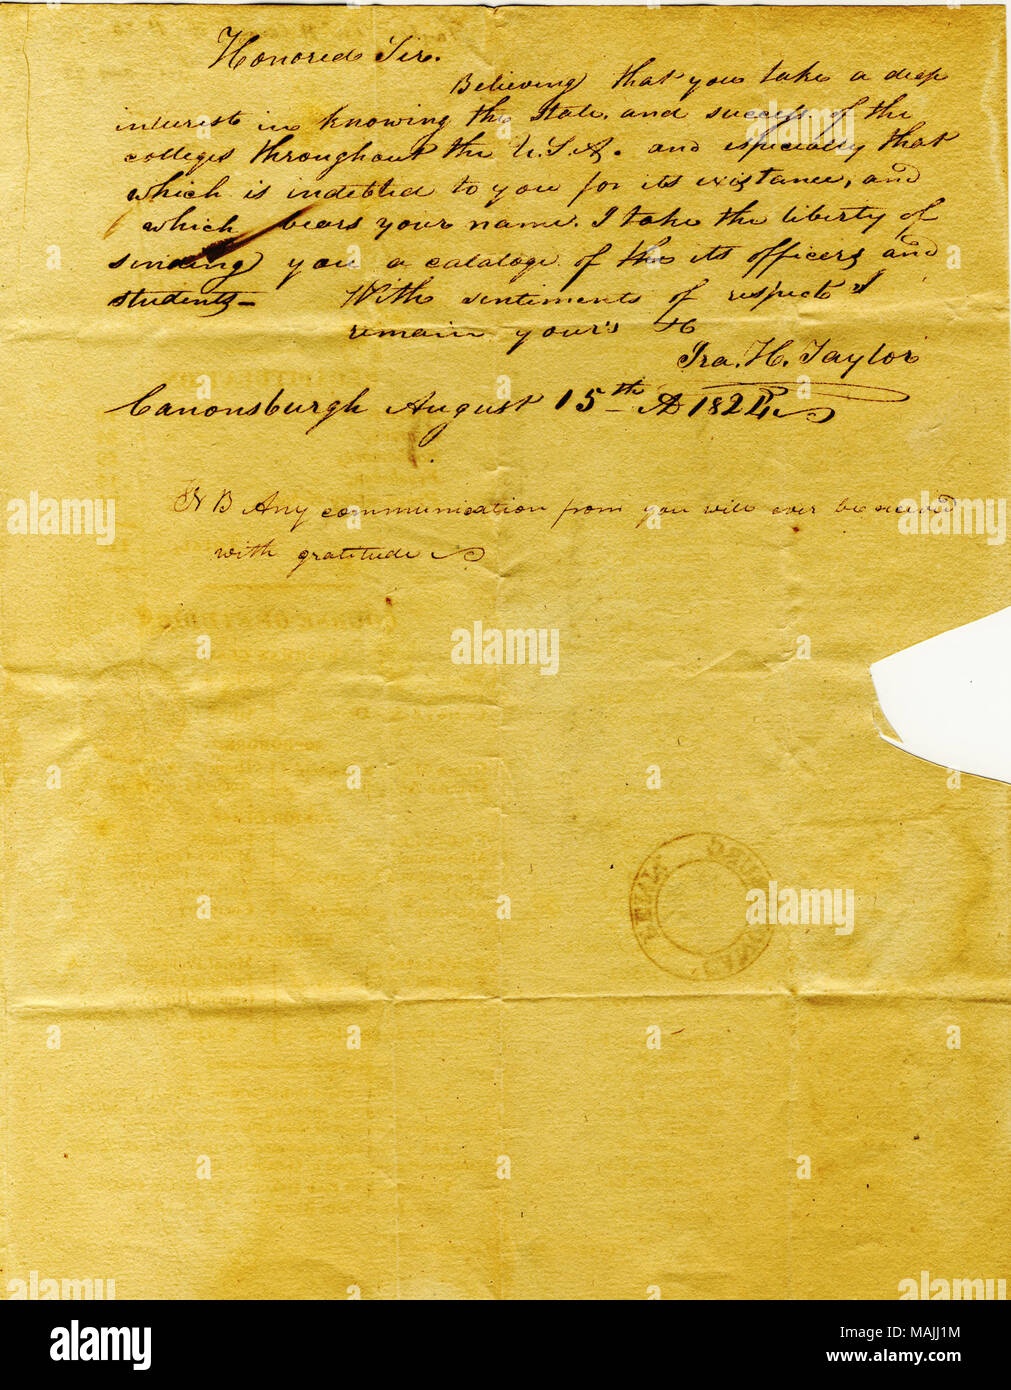 Honored Sir.
Believing that you take a deep
interest in knowing the state, and success of the
colleges throughout the U.S.A. and especially that
which is indebted to you for its existance, and
which bears your name. I take the liberty of
sending you a cataloge of the its officers and
students— With sentiments of respect I
remain your's &c
Ira. H. Taylor
Canonsburgh August 15th AD 1824
NB Any communication from you will ever be received
with gratitude
alamy
Image ID: MAJJ1M
www.alamy.com